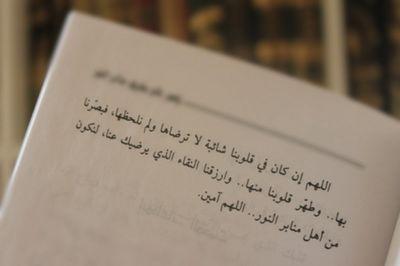 اللهم إن كان في قلوبنا شائبة لا ترضاها ولم نلحظها، فبصّرنا
بها.. وطهّر قلوبنا منها.. وارزقنا النقاء الذي يرضيك عنا، لنكون
من أهل منابر النور.. اللهم آمين.